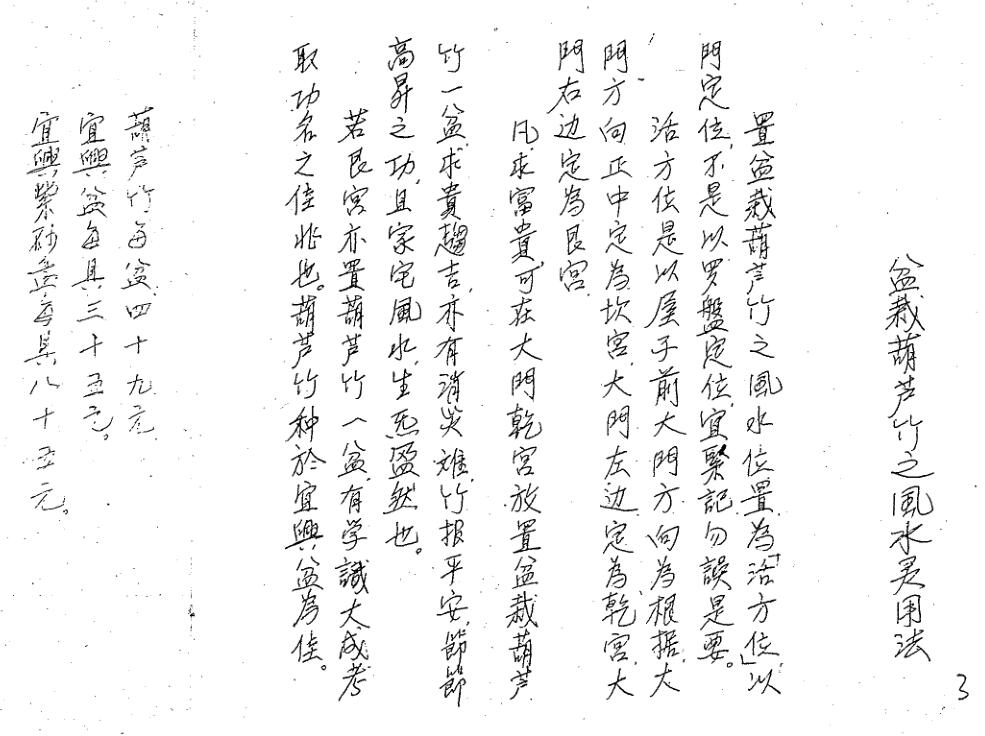 盆栽葫芦竹之風水灵用法
置盆栽葫芦竹之風水位置為「活方位」以
門定位,不是以罗盤定位,宜緊記勿誤是要。
活方位是以屋子前大門方向為根据,大
門方向正中定為坎宮,大門左边定為乾宮,大
門右边定為艮宮,
凡求富貴,可在大門乾宮放置盆栽葫芦
竹一盆,求貴趨吉,亦有消災难,竹报平安,節節
高昇之功,且家宅風水,生炁盈然也。
若艮宮亦置葫芦竹一盆,有学識大成考
取功名之佳兆也。葫芦竹种於宜興盆為佳。
葫芦竹每盆,四十九元,
宜興盆每具,三十五元。
宜興紫砂盆每具八十五元。
3